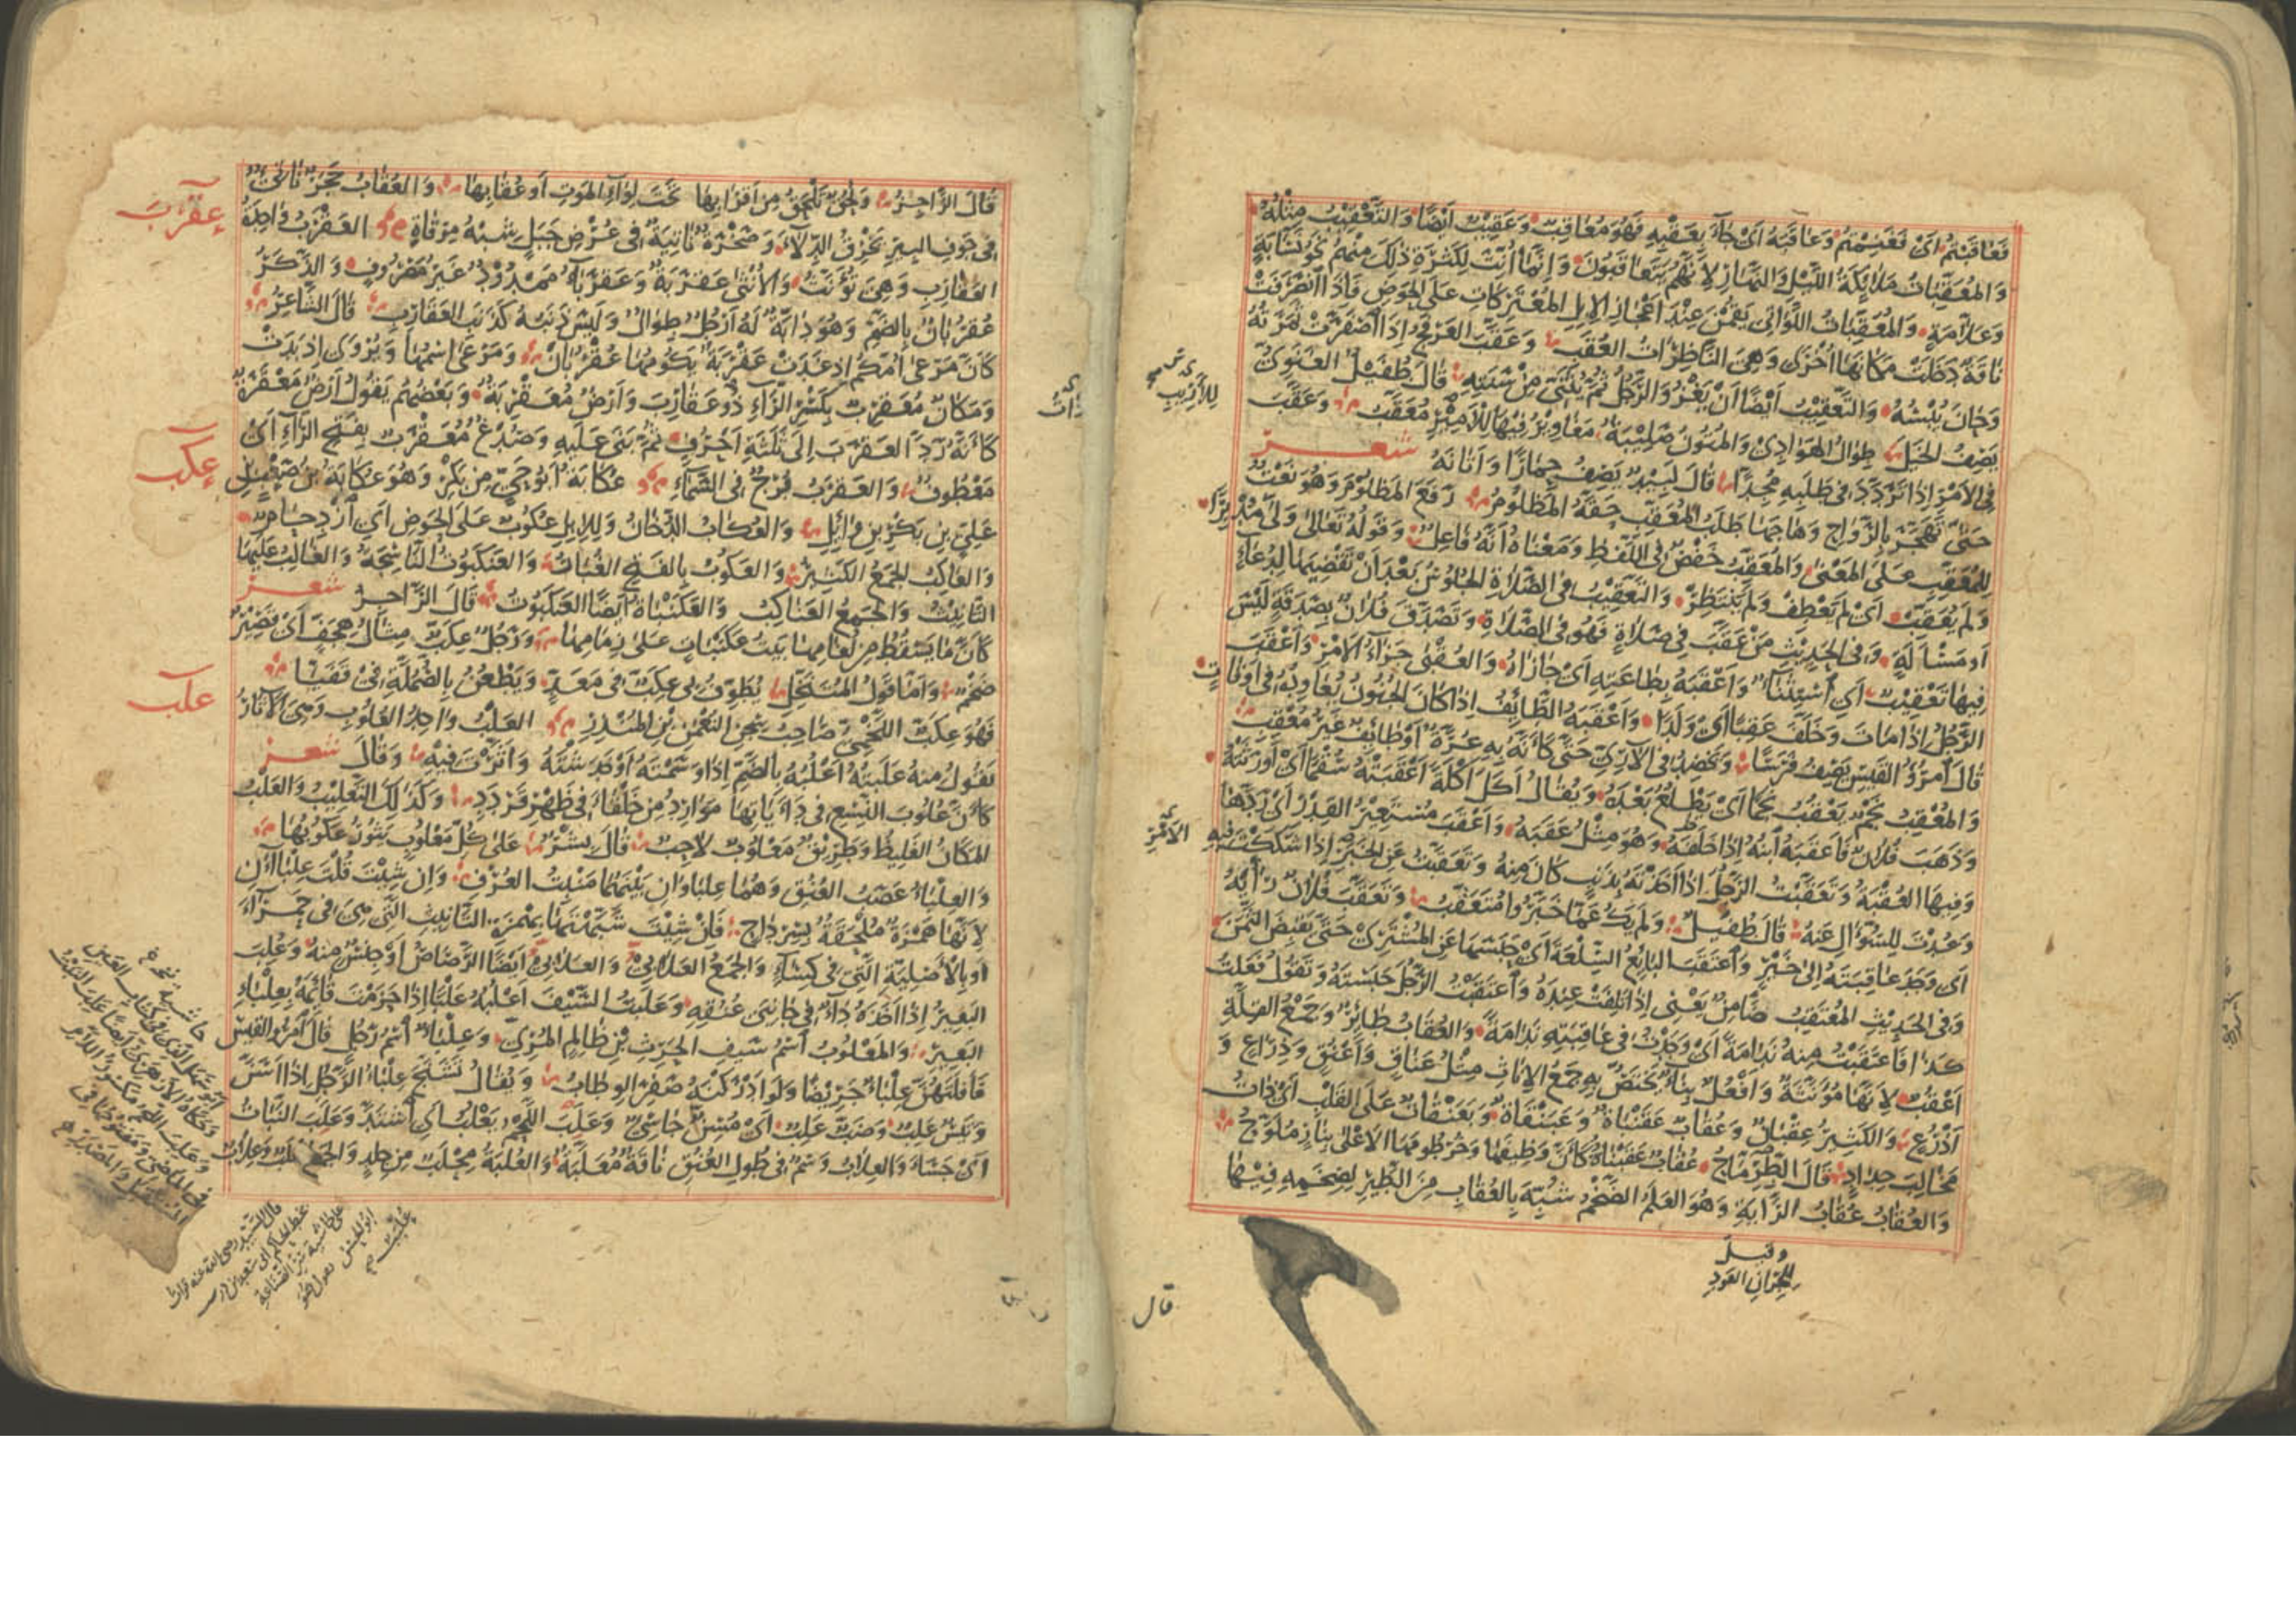 فَعَاقَبْتُمْ اَىْ فَغَنِمْتُمْ وَعَاقَبَهُ اَىْ جَآءَ بِعَقْبِهِ فَهُوَ مُعَاقِبٌ وَعَقِيْبٌ اَيْضًا وَالتَّعْقِيْبُ مِثْلُهُ
وَالمُعَقِّبَاتُ مَلٰائِكَةُ اللَّيْلِ وَالنَّهَارِ لِاَنَّهُمْ يَتَعَاقَبُونَ وَاِنَّمَا اُنِّثَ لِكَثْرَةِ ذٰلِكَ مِنْهُمْ نَحْوُ نَسَّابَةٍ
وَعَلَّامَةٍ وَالمُعَقِّبَاتُ اللَّوَاتِى يَقُمْنَ عِنْدَ اَعْجَازِ الاِبِلِ المُعْتَرِكَاتِ عَلَى الحَوْضِ فَاِذَا انْصَرَفَتْ
نَاقَةٌ دَخَلَتْ مَكَانَهَا اُخْرٰى وَهِىَ النَّاظِرَاتُ العُقَبِ وَعَقَّبَ العَرْفَجُ اِذَا اصْفَرَّتْ ثَمَرَتُهُ
وَحَانَ يُبْسُهُ وَالتَّعْقِيْبُ اَيْضًا اَنْ يَغْزُوَ الرَّجُلُ ثُمَّ يُثَنِّىَ مِنْ سَنَتِهِ قَالَ طُفَيْلٌ الغَنَوِىُّ
يَصِفُ الخَيْلَ طِوَالُ الهَوَادِىْ وَالمُتُونُ صَلِيْبَةٌ مَغَاوِيْرُ فِيْهَا لِلْاَمِيْرِ مُعَقَّبُ وَعَقَّبَ
فِى الاَمْرِ اِذَا تَرَدَّدَ فِى طَلَبِهِ مُجِدًّا قَالَ لَبِيْدٌ يَصِفُ حِمَارًا وَاَتَانَهُ شعر
حَتّٰى تَهَجَّرَ بِالرَّوَاحِ وَهَاجَهَا طَلَبَ المُعَقِّبِ حَقَّهُ المَظْلُوْمُ رَفَعَ المَظْلُوْمَ وَهُوَ نَعْتٌ
لِلْمُعَقِّبِ عَلَى المَعْنٰى وَالمُعَقِّبُ خَفْضٌ فِى اللَّفْظِ وَمَعْنَاهُ اَنَّهُ فَاعِلٌ وَقَوْلُهُ تَعَالٰى وَلّٰى مُدْبِرًا
وَلَمْ يُعَقِّبْ اَىْ لَمْ يَعْطِفْ وَلَمْ يَنْتَظِرْ وَالتَّعْقِيْبُ فِى الصَّلَاةِ الجُلُوْسُ بَعْدَ اَنْ تَقْضِيَهَا لِدُعَاءٍ
اَوْ مَسْأَلَةٍ وَفِى الحَدِيْثِ مَنْ عَقَّبَ فِى صَلَاةٍ فَهُوَ فِى الصَّلَاةِ وَتَصَدَّقَ فُلَانٌ بِصَدَقَةٍ لَيْسَ
فِيهَا تَعْقِيْبٌ اَىْ اسْتِثْنَاءٌ وَاَعْقَبَهُ بِطَاعَتِهِ اَىْ جَازَاهُ وَالعُقْبٰى جَزَاءُ الاَمْرِ وَاَعْقَبَ
الرَّجُلُ اِذَا مَاتَ وَخَلَّفَ عَقِبًا اَىْ وَلَدًا وَاَعْقَبَهُ الطَّائِفُ اِذَا كَانَ الجُنُوْنُ يُعَاوِدُهُ فِى اَوْقَاتٍ
قَالَ امْرُؤُ القَيْسِ يَصِفُ فَرَسًا وَيَخْضِدُ فِى الآرِىِّ حَتّٰى كَأَنَّهُ بِهِ عُرَّةٌ اَوْ طَائِفٌ غَيْرُ مُعْقِبِ
وَالمُعْقِبُ نَجْمٌ يَعْقُبُ نَجْمًا اَىْ يَطْلُعُ بَعْدَهُ وَيُقَالُ اَكَلَ اَكْلَةً اَعْقَبَتْهُ سُقْمًا اَىْ اَوْرَثَتْهُ
وَذَهَبَ فُلَانٌ فَاَعْقَبَهُ ابْنُهُ اِذَا خَلَفَهُ وَهُوَ مِثْلُ عَقَبَهُ وَاَعْقَبَ مُسْتَعِيْرُ القِدْرِ اَىْ رَدَّهَا
وَفِيهَا العُقْبَةُ وَتَعَقَّبْتُ الرَّجُلَ اِذَا اَخَذْتَهُ بِذَنْبٍ كَانَ مِنْهُ وَتَعَقَّبْتُ عَنِ الخَبَرِ اِذَا شَكَكْتَ فِيهِ
وَعُدْتَ لِلسُّؤَالِ عَنْهُ قَالَ طُفَيْلٌ وَلَمْ يَكُ عَمَّا خَبَّرُوا مُتَعَقَّبُ وَتَعَقَّبَ فُلَانٌ رَأْيَهُ
اَىْ وَجَدَ عَاقِبَتَهُ اِلٰى خَيْرٍ وَاعْتَقَبَ البَائِعُ السِّلْعَةَ اَىْ حَبَسَهَا عَنِ المُشْتَرِىْ حَتّٰى يَقْبِضَ الثَّمَنَ
وَفِى الحَدِيْثِ المُعْتَقِبُ ضَامِنٌ يَعْنِى اِذَا تَلِفَتْ عِنْدَهُ وَاعْتَقَبْتُ الرَّجُلَ حَبَسْتَهُ وَتَقُوْلُ فَعَلْتُ
كَذَا فَاعْتَقَبْتُ مِنْهُ نَدَامَةً اَىْ وَجَدْتُ فِى عَاقِبَتِهِ نَدَامَةً وَالعُقَابُ طَائِرٌ وَجَمْعُ القِلَّةِ
اَعْقُبٌ لِاَنَّهَا مُؤَنَّثَةٌ وَاَفْعُلٌ بِنَاءٌ يَخْتَصُّ بِهِ جَمْعُ الاِنَاثِ مِثْلُ عَنَاقٍ وَاَعْنُقٍ وَذِرَاعٍ وَ
اَذْرُعٍ وَالكَثِيرُ عِقْبَانٌ وَعُقَابٌ عَقَنْبَاةٌ وَعَبَنْقَاةٌ وَبَعَنْقَاةٌ عَلَى القَلْبِ اَىْ ذَاتُ
مَخَالِبَ حِدَادٍ قَالَ الطِّرِمَّاحُ عُقَابٌ عَقَنْبَاةٌ كَأَنَّ وَظِيفَهَا وَخُرْطُومَهَا الاَعْلٰى بِنَارٍ مُلَوَّحُ
وَالعُقَابُ عُقَابُ الرَّايَةِ وَهُوَ العَلَمُ الضَّخْمُ شُبِّهَ بِالعُقَابِ مِنَ الطَّيْرِ لِضِخَمِهِ فِيْهَا
الامر
وقيل
لِلجِرانِ العَود
قال
قَالَ الرَّاجِزُ وَلِحْىٌ تَلْحَقُ مِنْ اَقْرَابِهَا تَحْتَ لِوَاءِ المَوْتِ اَوْ عُقَابِهَا وَالعُقَابُ حَجَرٌ نَاتِئٌ
فِى جَوْفِ البِئْرِ يَخْرِقُ الدِّلَاءَ وَصَخْرَةٌ نَاتِيَةٌ فِى عُرْضِ جَبَلٍ شِبْهُ مِرْقَاةٍ العَقْرَبُ وَاحِدَةُ
العَقَارِبِ وَهِىَ تُؤَنَّثُ وَالاُنْثٰى عَقْرَبَةٌ وَعَقْرَبَاءُ مَمْدُوْدٌ غَيْرُ مَصْرُوفٍ وَالذَّكَرُ
عُقْرُبَانٌ بِالضَّمِّ وَهُوَ دَابَّةٌ لَهُ اَرْجُلٌ طِوَالٌ وَلَيْسَ ذَنَبُهُ كَذَنَبِ العَقَارِبِ قَالَ الشَّاعِرُ
كَأَنَّ مَرْعٰى اُمَّكُمْ اِذْ غَدَتْ عَقْرَبَةٌ يَكُومُهَا عُقْرُبَانْ وَمَرْعٰى اسْمُهَا وَيُرْوٰى اِذْ بَدَتْ
وَمَكَانٌ مُعَقْرِبٌ بِكَسْرِ الرَّاءِ ذُو عَقَارِبَ وَاَرْضٌ مُعَقْرِبَةٌ وَبَعْضُهُمْ يَقُولُ اَرْضٌ مَعْقَرَةٌ
كَأَنَّهُ رَدَّ العَقْرَبَ اِلٰى ثَلٰثَةِ اَحْرُفٍ ثُمَّ بَنٰى عَلَيْهِ وَصُدْغٌ مُعَقْرَبٌ بِفَتْحِ الرَّاءِ اَىْ
مَعْطُوفٌ وَالعَقْرَبُ بُرْجٌ فِى السَّمَاءِ عُكَابَةُ اَبُو حَىٍّ مِنْ بَكْرٍ وَهُوَ عُكَابَةُ بْنُ صَعْبِ بْنِ
عَلِىِّ بْنِ بَكْرِ بْنِ وَائِلٍ وَالعُكَابُ الدُّخَانُ وَلِلاِبِلِ عُكُوبٌ عَلَى الحَوْضِ اَىِ ازْدِحَامٌ
وَالعَاكِبُ الجَمْعُ الكَثِيْرُ وَالعَكُوبُ بِالفَتْحِ الغُبَارُ وَالعَنْكَبُوتُ النَّاسِجَةُ وَالغَالِبُ عَلَيْهَا
التَّانِيْثُ وَالجَمْعُ العَنَاكِبُ وَالعَكَنْبَاةُ اَيْضًا العَنْكَبُوتُ قَالَ الرَّاجِزُ شعر
كَأَنَّ مَا يَسْقُطُ مِنْ لُغَامِهَا بَيْتُ عَكَنْبَاةٍ عَلٰى زِمَامِهَا وَرَجُلٌ عِكَبٌّ مِثَالُ هِجَفٍّ اَىْ قَصِيْرٌ
ضَخْمٌ وَاَمَّا قَوْلُ المُتَنَخِّلِ يُطَوِّفُ بِى عِكَبٌّ فِى مَعَدٍّ وَيَطْعُنُ بِالصُّمُلَّةِ فِىْ قَفَيَّا
فَهُوَ عِكَبٌّ اللَّخْمِىُّ صَاحِبُ سِجْنِ النُّعْمٰنِ بْنِ المُنْذِرِ العَلْبُ وَاحِدُ العُلُوبِ وَهِىَ الآثَارُ
تَقُولُ مِنْهُ عَلَبْتُهُ اَعْلُبُهُ بِالضَّمِّ اِذَا وَسَمْتَهُ اَوْ خَدَشْتَهُ وَاَثَّرْتَ فِيْهِ وَقَالَ شعر
كَأَنَّ عُلُوبَ النِّسْعِ فِى دَأَيَاتِهَا مَوَارِدُ مِنْ خَلْقَاءَ فِى ظَهْرِ قَرْدَدِ وَكَذٰلِكَ التَّعْلِيْبُ وَالعَلْبُ
المَكَانُ الغَلِيْظُ وَطَرِيْقٌ مَعْلُوبٌ لَاحِبٌ قَالَ بِشْرٌ عَلٰى كُلِّ مَعْلُوبٍ يَثُوْرُ عَكُوبُهَا
وَالعِلْبَاءُ عَصَبُ العُنُقِ وَهُمَا عِلْبَاوَانِ بَيْنَهُمَا مَنْبِتُ العُرْفِ وَاِنْ شِئْتَ قُلْتَ عِلْبَاآنِ
لِاَنَّهَا هَمْزَةٌ مُلْحَقَةٌ بِسِرْدَاحٍ فَاِنْ شِئْتَ شَبَّهْتَهَا بِهَمْزَةِ التَّانِيْثِ الَّتِى هِىَ فِى حَمْرَاءَ
اَوْ بِالاَصْلِيَّةِ الَّتِى فِى كِسَاءٍ وَالجَمْعُ العَلَابِىُّ وَالعَلَابِىُّ اَيْضًا الرَّصَاصُ اَوْ جِنْسٌ مِنْهُ وَعَلِبَ
البَعِيْرُ اِذَا اَخَذَهُ دَاءٌ فِى جَانِبَىْ عُنُقِهِ وَعَلَبْتُ السَّيْفَ اَعْلُبُهُ عَلْبًا اِذَا حَزَمْتَ قَائِمَهُ بِعِلْبَاءِ
البَعِيْرِ وَالمَعْلُوبُ اسْمُ سَيْفِ الحٰرِثِ بْنِ ظَالِمٍ المُرِّىِّ وَعِلْبَاءُ اسْمُ رَجُلٍ قَالَ امْرُؤُ القَيْسِ
فَاَفْلَتَهُنَّ عِلْبَاءٌ جَرِيْضًا وَلَوْ اَدْرَكْنَهُ صَفِرَ الوِطَابُ وَيُقَالُ تَشَنَّجَ عِلْبَاءُ الرَّجُلِ اِذَا اَسَنَّ
وَتَيْسٌ عَلِبٌ وَضَبٌّ عَلِبٌ اَىْ مُسِنٌّ جَاسِىٌ وَعَلَبَ اللَّحْمُ يَعْلُبُ اَىِ اشْتَدَّ وَعَلِبَ النَّبَاتُ
اَىْ جَسَأَ وَالعِلَابُ وَسْمٌ فِى طُولِ العُنُقِ نَاقَةٌ مُعَلَّبَةٌ وَالعُلْبَةُ مِحْلَبٌ مِنْ جِلْدٍ وَالجَمْعُ عُلَبٌ وَعِلَابٌ
عقرب
عكب
علب